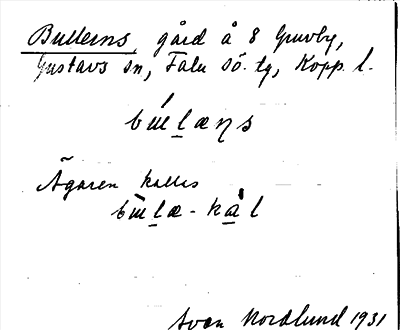 Bullerns, gård å 8 Gruvby,
Gustavs sn, Falu Sö. tg, Kopp. l.
búllæŋs
Ägaren kallas
bùllæ-kål
Sven Nordlund 1931